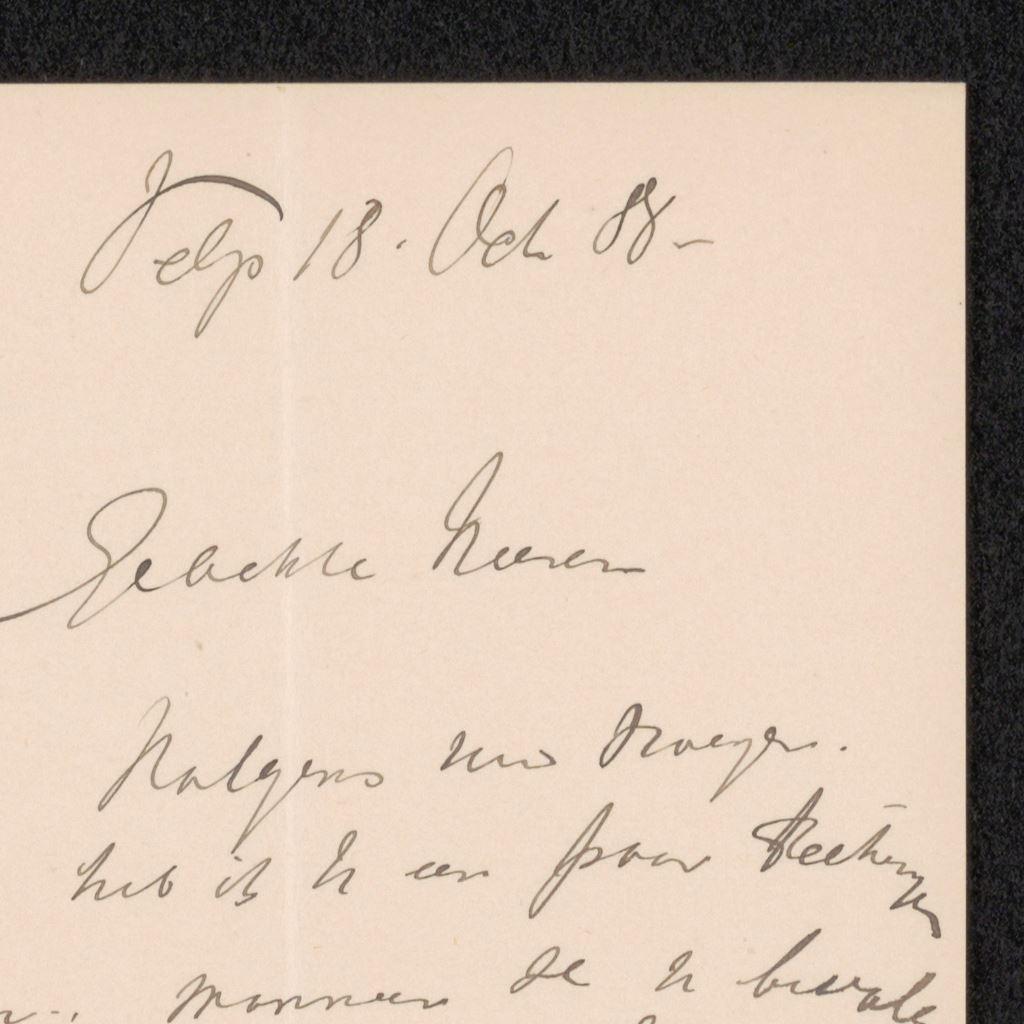 Velp 18. Oct 88-
Geachte Heeren
Volgens uw vragen.
heb ik U een paar Teekeningen
wanneer de U bevalle